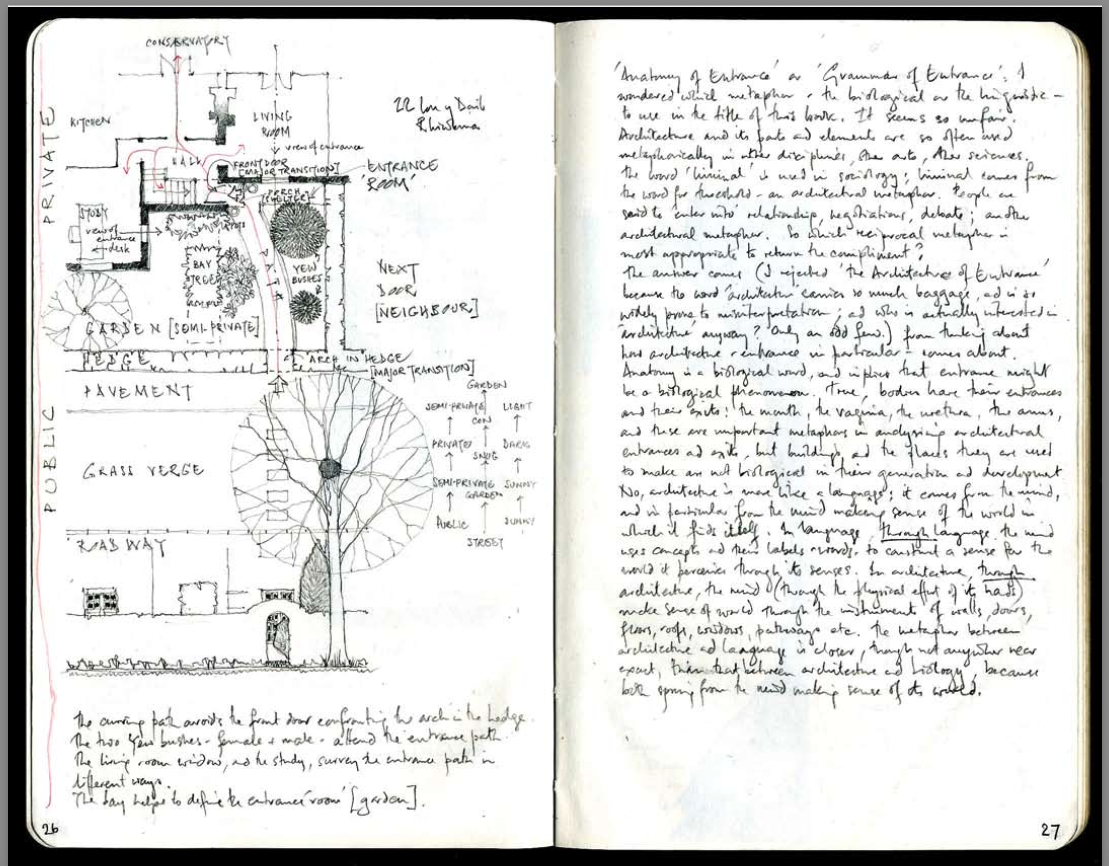 CONSERVATORY
22 Lon y Dail
Rhiwbina
KITCHEN
LIVING
ROOM
view of entrance
HALL
FRONT DOOR
[MAJOR TRANSITION]
ENTRANCE
'ROOM'
PORCH
[SHELTER]
PRIVATE
STUDY
view of
entrance
desk
BAY
TREE
YEW
BUSHES
NEXT
DOOR
[NEIGHBOUR]
GARDEN [SEMI-PRIVATE]
HEDGE
ARCH IN HEDGE
[MAJOR TRANSITION]
PAVEMENT
GARDEN
SEMI-PRIVATE LIGHT
CON
PRIVATE DARK
SNUG
SEMI-PRIVATE SUNNY
GARDEN
PUBLIC SUNNY
STREET
GRASS VERGE
PUBLIC
ROADWAY
The curving path avoids the front door confronting the arch in the hedge.
The two yew bushes - female + male - attend the entrance path.
The living room window, and the study, survey the entrance path in
different ways.
The bay helps to define the entrance 'room' [garden].
26
'Anatomy of Entrance' or 'Grammar of Entrance'; I
wondered which metaphor - the biological or the linguistic -
to use in the title of this book. It seems so unfair.
Architecture and its parts and elements are so often used
metaphorically in other disciplines, the arts, the sciences.
The word 'liminal' is used in sociology; liminal comes from
the word for threshold - an architectural metaphor. People are
said to 'enter into' relationship, negotiations, debate; another
architectural metaphor. So which reciprocal metaphor is
most appropriate to return the compliment?
The answer comes (I rejected 'the Architecture of Entrance'
because the word 'architecture' carries so much baggage, ad is so
widely prone to misinterpretation; ad who is actually interested in
'architecture' anyway? Only an odd few.) from thinking about
how architecture - entrance in particular - comes about.
Anatomy is a biological word, and implies that entrance might
be a biological phenomenon. True, bodies have their entrances
and their exits: the mouth, the vagina, the urethra, the anus,
and these are important metaphors in analysing architectural
entrances ad exits, but buildings ad the places they are used
to make are not biological in their generation ad development.
No, architecture is more like a language; it comes from the mind,
and in particular from the mind making sense of the world in
which it finds itself. In language, through language, the mind
uses concepts ad their labels - words - to construct a sense for the
world it perceives through its senses. In architecture, through
architecture, the mind (through the physical effect of its hands)
make sense of world through the instrument of walls, doors,
floors, roofs, windows, pathways etc. The metaphor between
architecture ad language is closer, though not anywhere near
exact, than that between architecture ad biology, because
both spring from the mind making sense of its world.
27